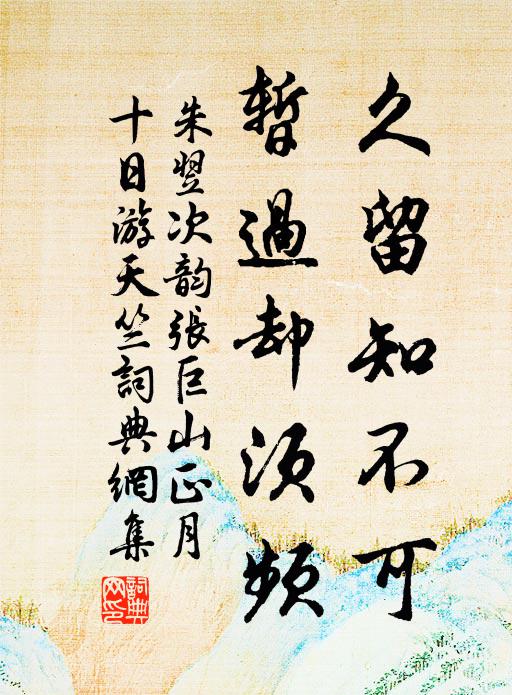 久留知不可
暫過却須頻
朱翌次韵張巨山正月
十日游天竺詞典網集
詞典網印